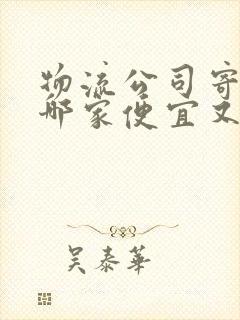 物流公司寄
哪家便宜又
吴泰华